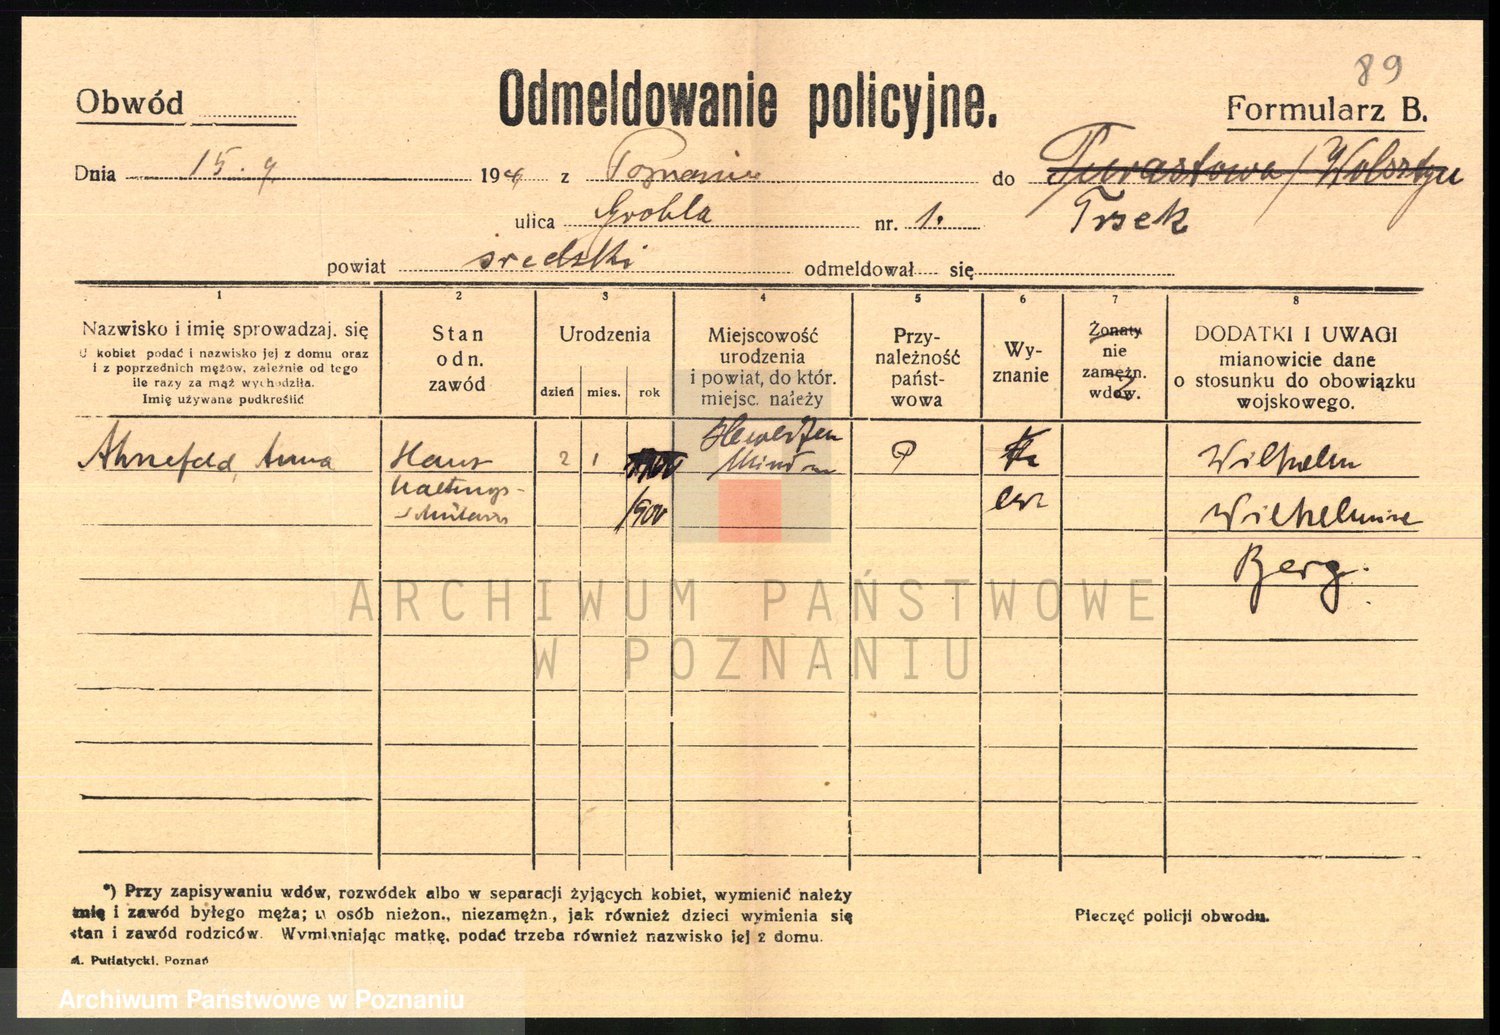 89
Obwód
Odmeldowanie policyjne.
Formularz B.
Dnia 15. 194 z Poznania do / Wolsztyn
ulica Grobla nr. 1. Trsek
powiat sredzki odmeldował się
1 2 3 4 5 6 7 8
Nazwisko i imię sprowadzaj. się
U kobiet podać i nazwisko jej z domu oraz
i z poprzednich mężów, zależnie od tego
ile razy za mąż wychodziła.
Imię używane podkreślić
Stan
odn.
zawód
Urodzenia
dzień mies. rok
Miejscowość
urodzenia
i powiat, do któr.
miejsc. należy
Przy-
należność
państ-
wowa
Wy-
znanie
Żonaty
nie
zamężn.
wdów.
DODATKI I UWAGI
mianowicie dane
o stosunku do obowiązku
wojskowego.
Ahnefeld, Anna
Haus
haltungs-
2 1
1900
Minden
P
ew
Wilhelm
Wilhelmine
Berg.
ARCHIWUM PAŃSTWOWE
W POZNANIU
*) Przy zapisywaniu wdów, rozwódek albo w separacji żyjących kobiet, wymienić należy
imię i zawód byłego męża; u osób nieżon., niezamężn., jak również dzieci wymienia się
stan i zawód rodziców. Wymieniając matkę, podać trzeba również nazwisko jej z domu.
A. Putiatycki, Poznań
Pieczęć policji obwodu.
Archiwum Państwowe w Poznaniu